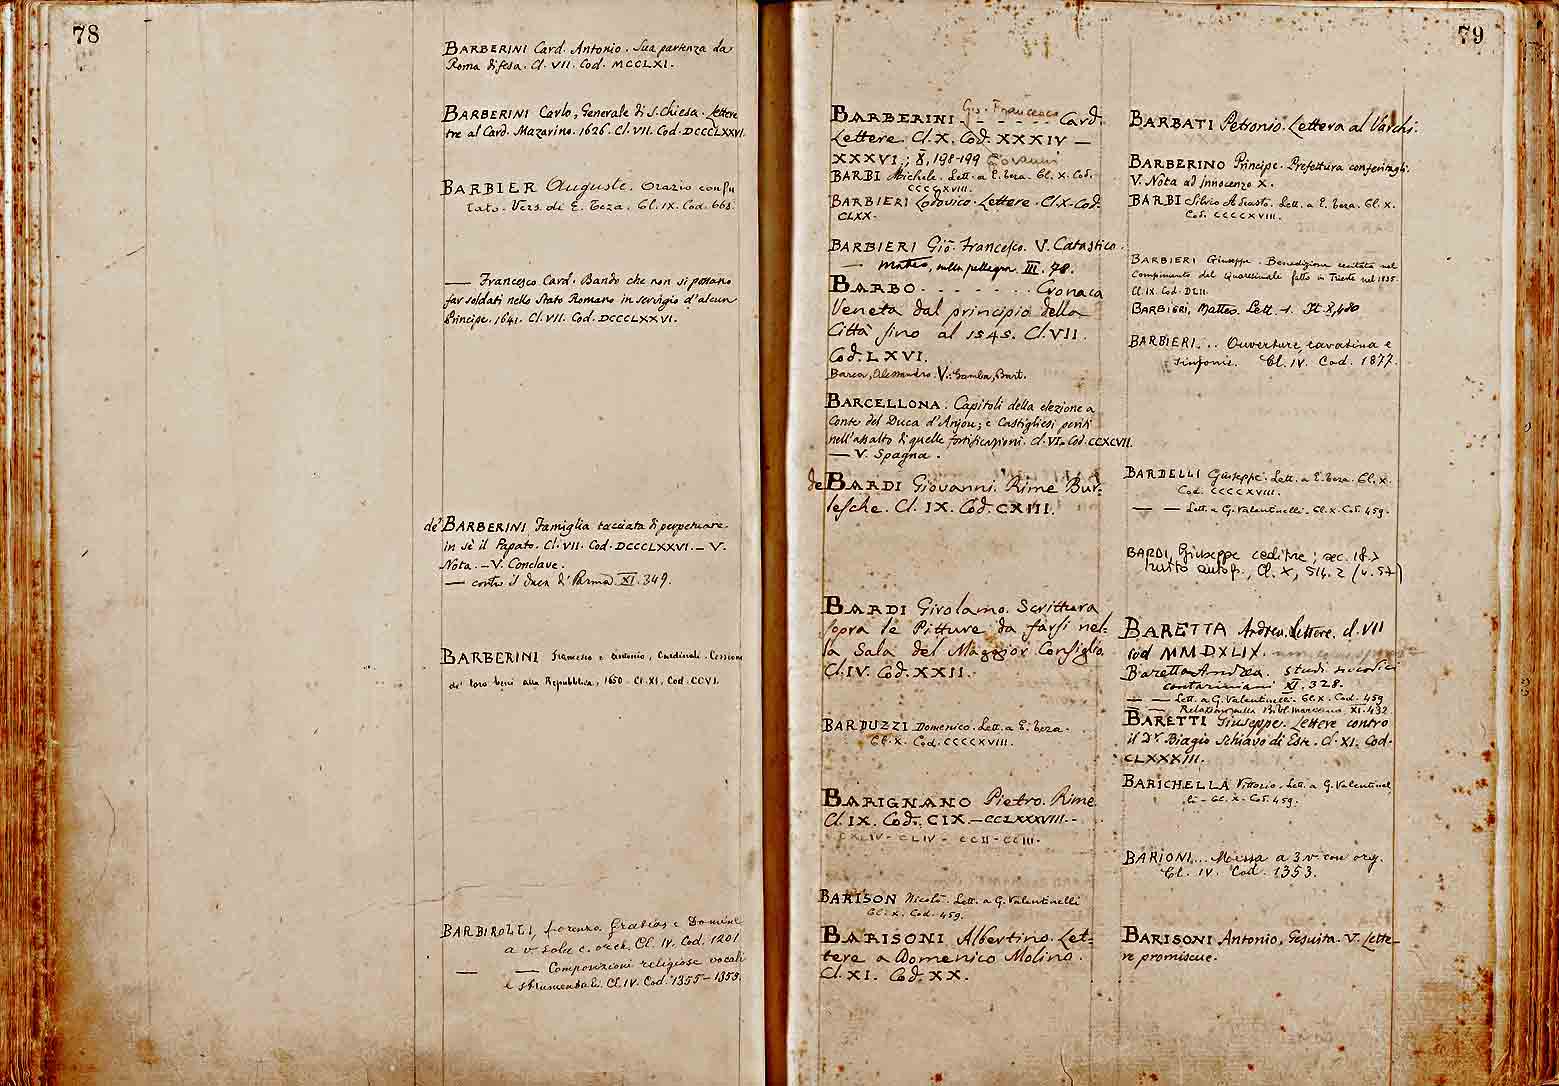 78
BARBERINI Card. Antonio. Sua partenza da
Roma difesa. Cl. VII. Cod. MCCLXI.
BARBERINI Carlo, Generale di S. Chiesa. Lette
tre al Card. Mazarino. 1626. Cl. VII. Cod. DCCCLXXVI.
BARBIER Auguste. Orazio confu
tato. Vers. di E. Teza. Cl. IX. Cod. 668.
— Francesco Card. Bando che non si possano
far soldati nello Stato Romano in servigio d'alcun
Principe. 1641. Cl. VII. Cod. DCCCLXXVI.
de' BARBERINI Famiglia tacciata di perpetuare
in sè il Papato. Cl. VII. Cod. DCCCLXXVI. — V.
Nota. — V. Conclave.
— contro il duca di Parma XI. 349.
BARBERINI Francesco e Antonio, Cardinali. Cessione
de' loro beni alla Repubblica, 1650. Cl. XI. Cod. CCVI.
BARBIROLLI, Lorenzo. Gratias e Domine
a v. sola e orch. Cl. IV. Cod. 1201
— — Composizioni religiose vocali
e strumentali. Cl. IV. Cod. 1355-1358.
79
BARBERINI Gio. Francesco Card.
Lettere. Cl. X. Cod. XXXIV —
XXXVI.; X, 198-199 Giovanni
BARBI Michele. Lett. a E. Teza. Cl. X. Cod.
CCCCXVIII.
BARBIERI Lodovico. Lettere. Cl. X. Cod.
CLXX.
BARBIERI Gio. Francesco. V. Catastico.
— Matteo, sulla pellagra III. 78.
BARBO . . . . . . . Cronaca
Veneta dal principio della
Città fino al 1545. Cl. VII.
Cod. LXVI.
Barca, Alessandro. V.: Gamba, Bart.
BARCELLONA. Capitoli della elezione a
Conte del Duca d'Anjou; e Castigliesi periti
nell'assalto di quelle fortificazioni. Cl. VI. Cod. CCXCVII.
— V. Spagna.
de BARDI Giovanni. Rime Bur-
lesche. Cl. IX. Cod. CXIII.
BARDI Girolamo. Scrittura
sopra le Pitture da farsi nel-
la Sala del Maggior Consiglio.
Cl. IV. Cod. XXII.
BARDUZZI Domenico. Lett. a E. Teza.
Cl. X. Cod. CCCCXVIII.
BARIGNANO Pietro. Rime
Cl. IX. Cod. CIX. — CCLXXXVIII. -
CLIV - CCII - CCIII.
BARISON Nicolò. Lett. a G. Valentinelli
Cl. X. Cod. 459.
BARISONI Albertino. Let-
tere a Domenico Molino.
Cl. XI. Cod. XX.
BARBATI Petronio. Lettera al Varchi.
BARBERINO Principe. Prefettura conferitagli.
V. Nota ad Innocenzo X.
BARBI Silvio Adrasto. Lett. a E. Teza. Cl. X.
Cod. CCCCXVIII.
BARBIERI Giuseppe. Benedizione recitata nel
Compimento del Quaresimale fatto in Trieste nel 1835.
Cl. IX. Cod. DLII.
BARBIERI, Matteo. Lett. 1. It X, 480
BARBIERI... Ouverture, cavatina e
sinfonie. Cl. IV. Cod. 1877.
BARDELLI Giuseppe. Lett. a E. Teza. Cl. X.
Cod. CCCCXVIII.
— — Lett. a G. Valentinelli. Cl. X. Cod. 459.
BARDI, Giuseppe ; sec. 18.
autogr., Cl. X, 514. 2
BARETTA Andrea. Lettere. cl. VII
cod MMDXLIX.
Baretta Andrea. studi
contariniani XI. 328.
— — Lett. a G. Valentinelli. Cl. X. Cod. 459
— — Relazione sulla Bibl. marciana XI. 432
BARETTI Giuseppe. Lettere contro
il Dr. Biagio Schiavo di Este. Cl. XI. Cod.
CLXXXIII.
BARICHELLA Vittorio. Lett. a G. Valentinel
li - Cl. X. Cod. 459.
BARIONI... Messa a 3 v. con org.
Cl. IV. Cod. 1353.
BARISONI Antonio, Gesuita. V. Lette-
re promiscue.